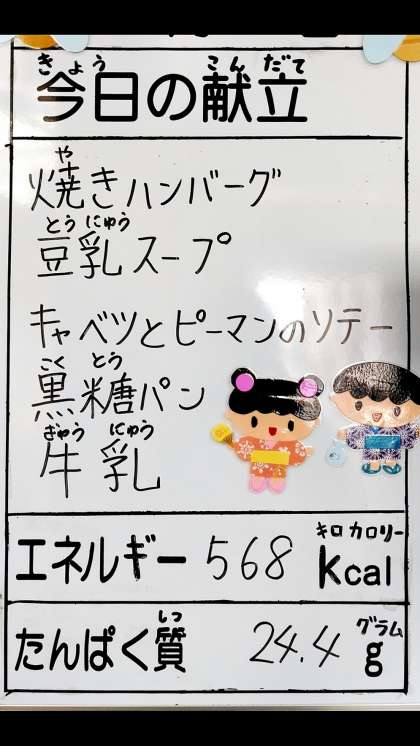 きょう こんだて
今日の献立
や
焼きハンバーグ
とうにゅう
豆乳スープ
キャベツとピーマンのソテー
こく とう
黒糖パン
ぎゅう にゅう
牛乳
キロカロリー
エネルギー 568 kcal
しつ グラム
たんぱく質 24.4 g